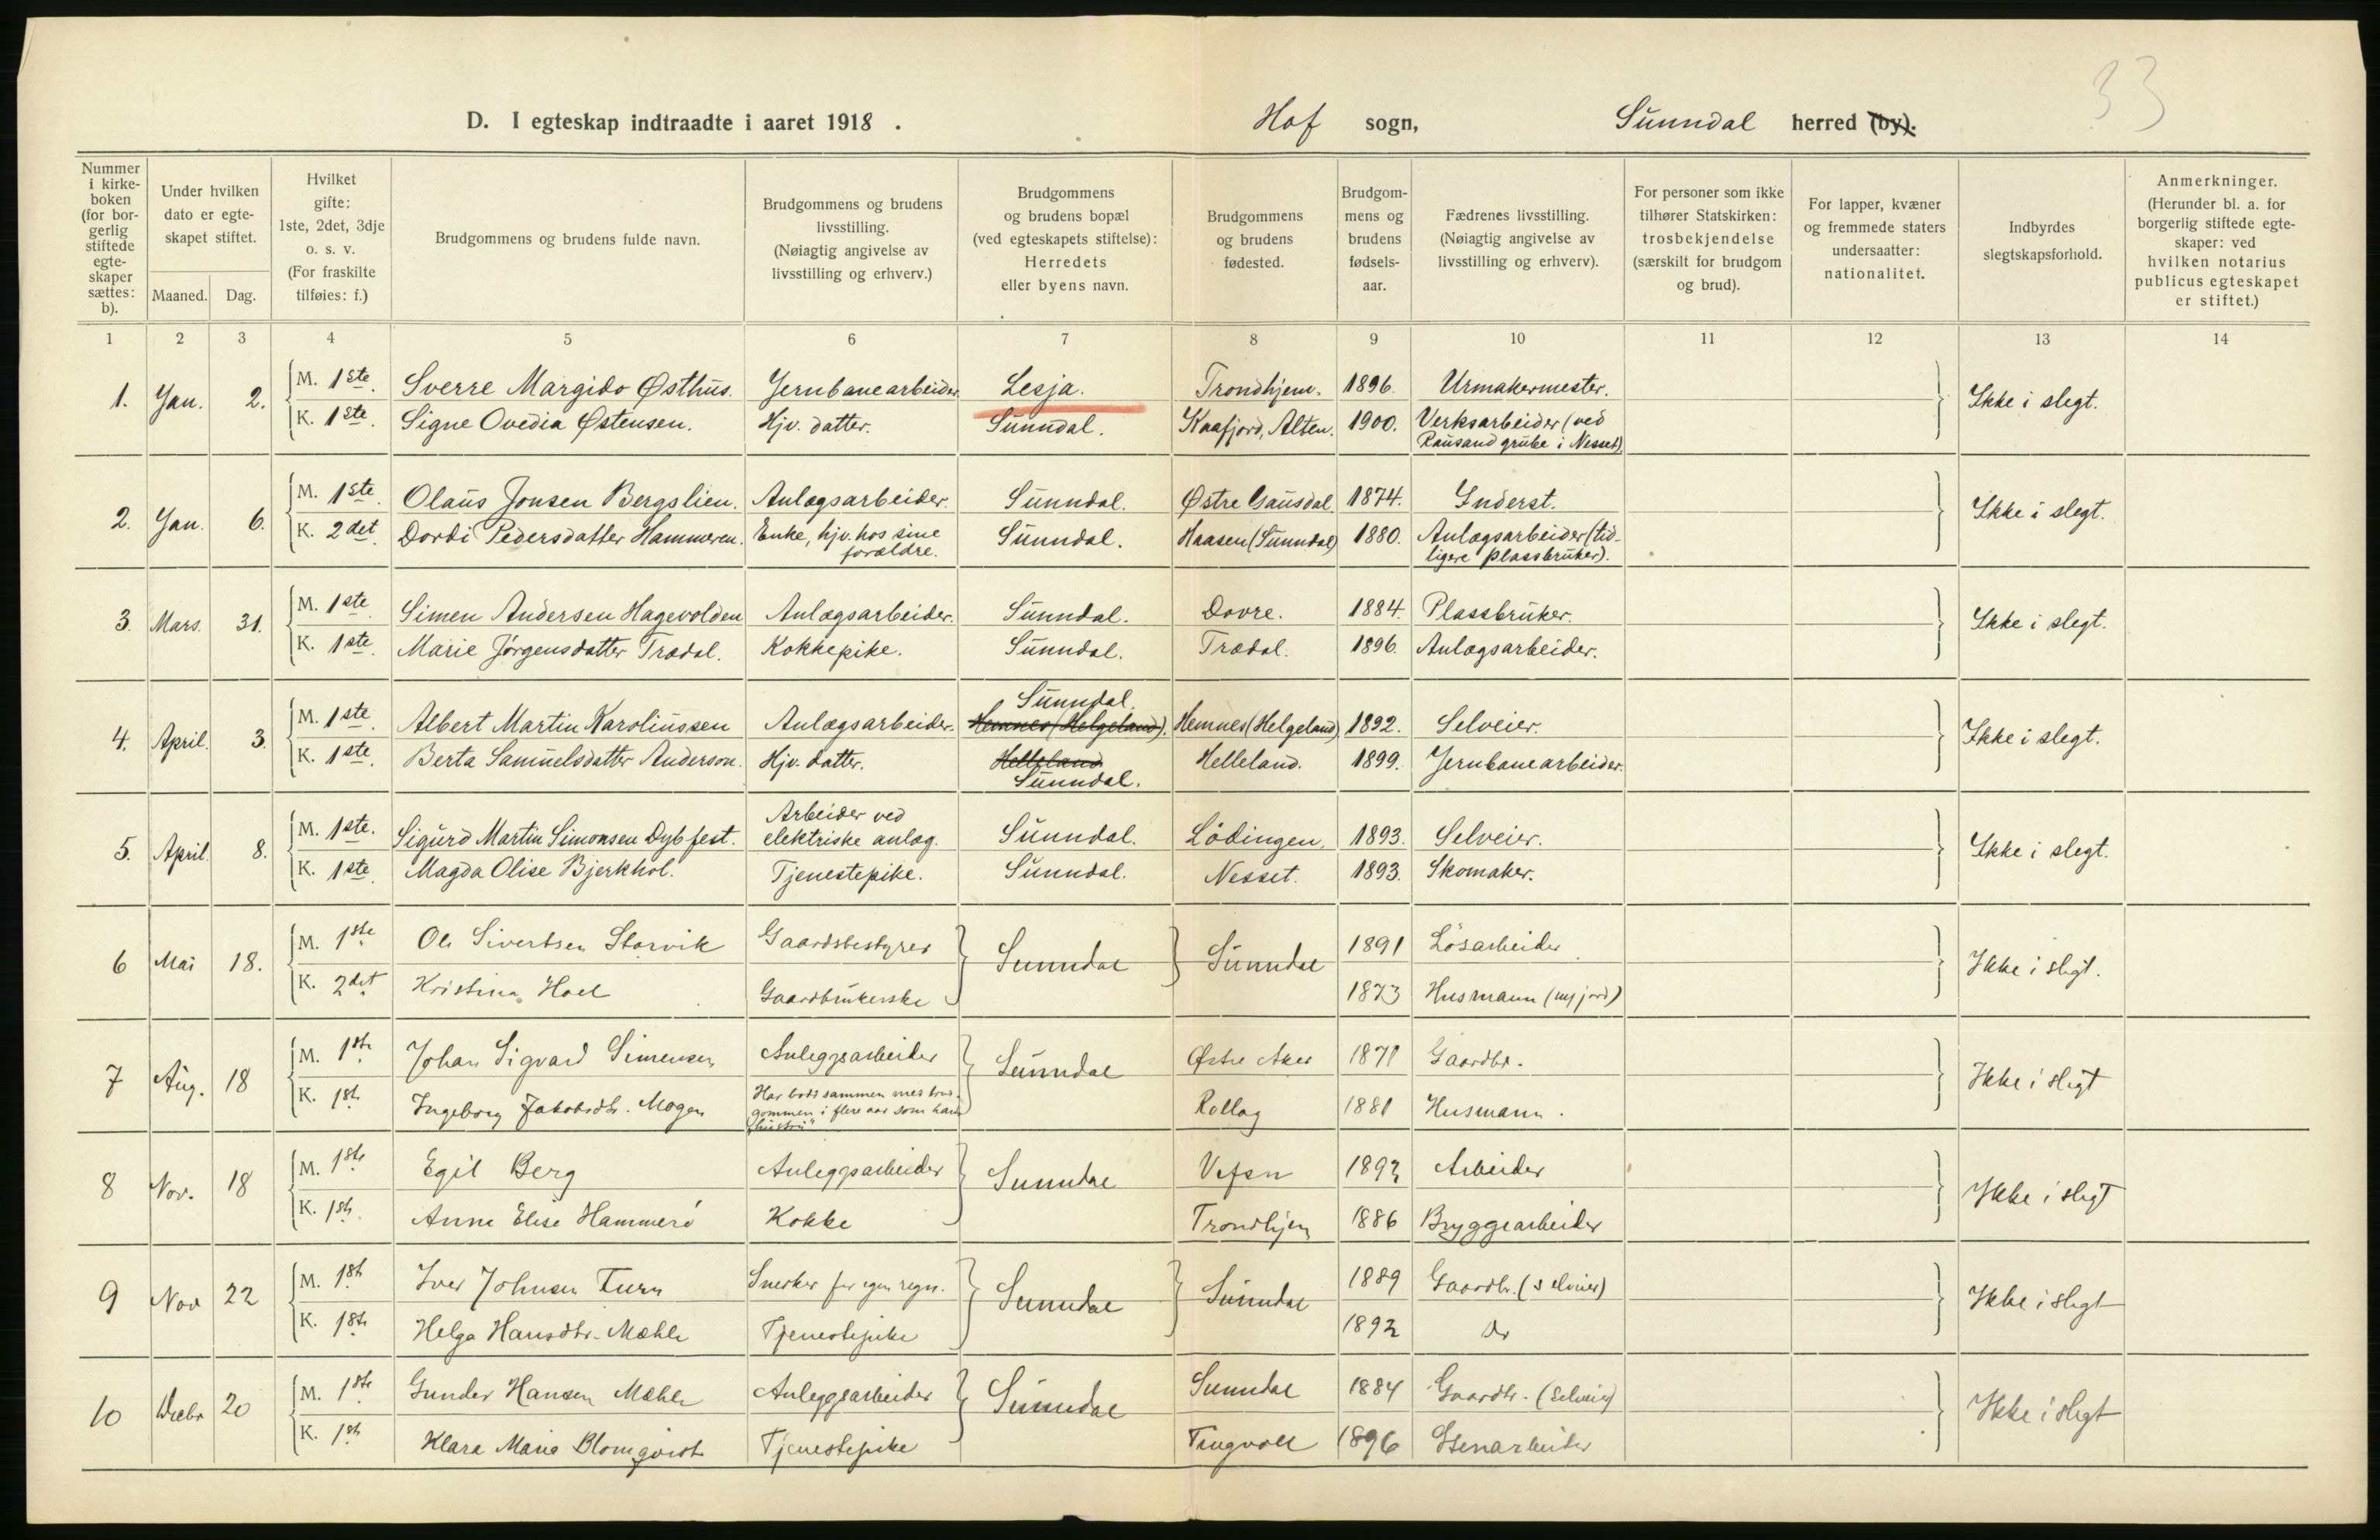 33
D. I egteskap indtraadte i aaret 1918. Hof sogn, Sunndal herred (by).
Nummer i kirkeboken (for borgerlig stiftede egteskaper sættes: b).
Under hvilken dato er egteskapet stiftet.
Maaned. Dag.
Hvilket gifte: 1ste, 2det, 3dje o. s. v. (For fraskilte tilføies: f.)
Brudgommens og brudens fulde navn.
Brudgommens og brudens livsstilling. (Nøiagtig angivelse av livsstilling og erhverv.)
Brudgommens og brudens bopæl (ved egteskapets stiftelse): Herredets eller byens navn.
Brudgommens og brudens fødested.
Brudgommens og brudens fødselsaar.
Fædrenes livsstilling. (Nøiagtig angivelse av livsstilling og erhverv).
For personer som ikke tilhører Statskirken: trosbekjendelse (særskilt for brudgom og brud).
For lapper, kvæner og fremmede staters undersaatter: nationalitet.
Indbyrdes slegtskapsforhold.
Anmerkninger. (Herunder bl. a. for borgerlig stiftede egteskaper: ved hvilken notarius publicus egteskapet er stiftet.)
1 2 3 4 5 6 7 8 9 10 11 12 13 14
1. Jan. 2. M. 1ste. Sverre Margido Østhus. Jernbanearbeider. Lesja. Trondhjem. 1896. Urmakermester. Ikke i slegt.
K. 1ste. Signe Ovedia Østensen. Hjv. datter. Sunndal. Kaafjord, Alten. 1900. Verksarbeider (ved
Rausand grube i Nesset).
2. Jan. 6. M. 1ste. Olaus Jonsen Bergslien. Anlægsarbeider. Sunndal. Østre Gausdal. 1874. Inderst. Ikke i slegt.
K. 2det. Dordi Pedersdatter Hammeren. Enke, hjv. hos sine Sunndal. Haasen (Sunndal) 1880. Anlægsarbeider (tid-
forældre. ligere plassbruker).
3. Mars. 31. M. 1ste. Simen Andersen Hagevolden Anlægsarbeider. Sunndal. Dovre. 1884. Plassbruker. Ikke i slegt.
K. 1ste. Marie Jørgensdatter Trædal. Kokkepike. Sunndal. Trædal. 1896. Anlægsarbeider.
Sunndal.
4. April. 3. M. 1ste. Albert Martin Karoliussen Anlægsarbeider. Hemnes (Helgeland). Hemnes (Helgeland) 1892. Selveier. Ikke i slegt.
K. 1ste. Berta Samuelsdatter Anderson. Hjv. datter. Helleland Helleland. 1899. Jernbanearbeider.
Sunndal.
Arbeider ved
5. April. 8. M. 1ste. Sigurd Martin Simonsen Dybfest. elektriske anlæg. Sunndal. Lödingen. 1893. Selveier. Ikke i slegt.
K. 1ste. Magda Olise Bjerkhol. Tjenestepike. Sunndal. Nesset. 1893. Skomaker.
6 Mai 18. M. 1ste Ole Sivertsen Storvik Gaardsbestyrer Sunndal Sunndal 1891 Lösarbeider Ikke i slegt.
K. 2det Kristina Hoel Gaardbrukerske 1873 Husmann (m/jord)
7 Aug. 18 M. 1ste Johan Sigvard Simensen Anleggsarbeider Sunndal Østre Aker 1871 Gaardbr. Ikke i slegt
K. 1ste Ingeborg Jakobsdtr. Mogen Har bodd sammen med brud-
gommen i flere aar som hans
"hustru" Rollag 1881 Husmann.
8 Nov. 18 M. 1ste Egil Berg Anleggsarbeider Sunndal Vefsn 1892 Arbeider Ikke i slegt
K. 1ste Anna Elise Hammerö Kokke Trondhjem 1886 Bryggearbeider
9 Nov 22 M. 1ste Iver Johnsen Furu Snekker for egen regn. Sunndal Sunndal 1889 Gaardbr. (selveier) Ikke i slegt
K. 1ste Helga Hansdtr. Mæhle Tjenestepike 1892 do
10 Decbr 20 M. 1ste Gunder Hansen Mæhle Anleggsarbeider Sunndal Sunndal 1884 Gaardbr. (selveier) Ikke i slegt
K. 1ste Klara Maria Blomqvist Tjenestepike Tingvoll 1896 Stenarbeider